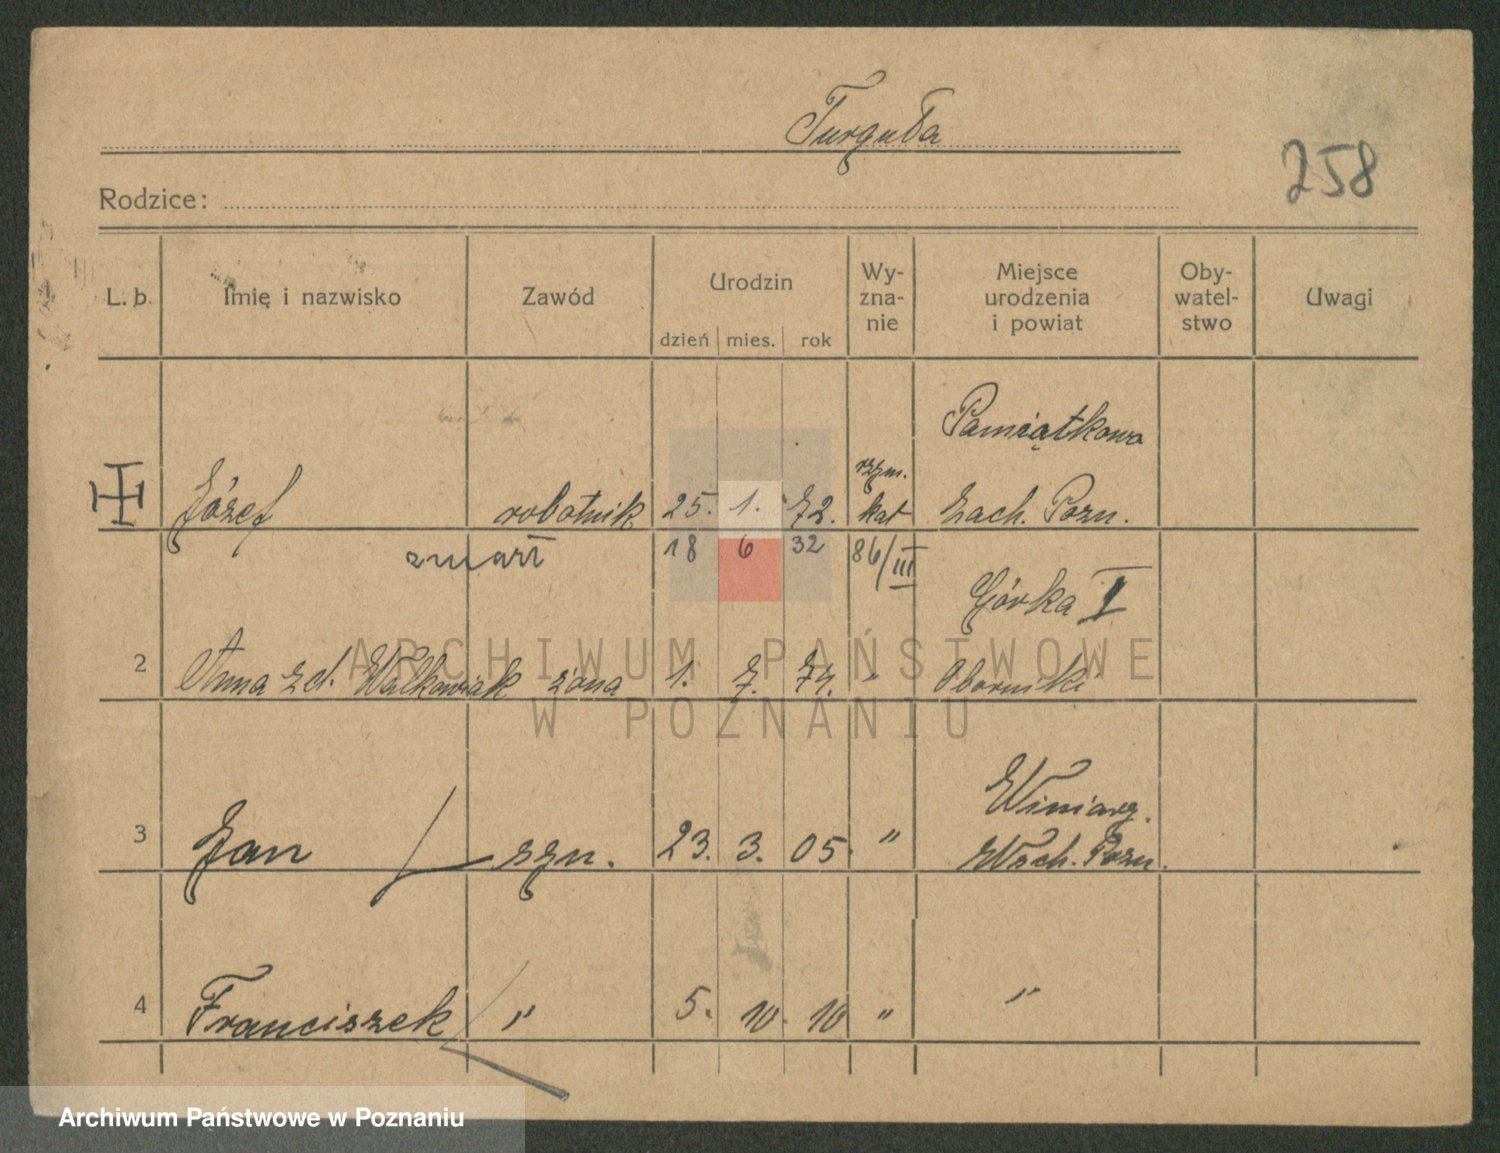 Turguła
258
Rodzice:
L. b. Imię i nazwisko Zawód Urodzin dzień mies. rok Wy-zna-nie Miejsce urodzenia i powiat Oby-watel-stwo Uwagi
Pamiątkowo
Józef robotnik 25. 1. 72. rzym. kat Zach. Pozn.
zmarł 18 6 32 86/III
Górka I
2 Anna zd. Walkowiak żona 1. 7. 74. " Oborniki
Winiary.
3 Jan szn. 23. 3. 05. " Wsch. Pozn.
4 Franciszek " 5. 10. 10 " "
ARCHIWUM PAŃSTWOWE
W POZNANIU
Archiwum Państwowe w Poznaniu